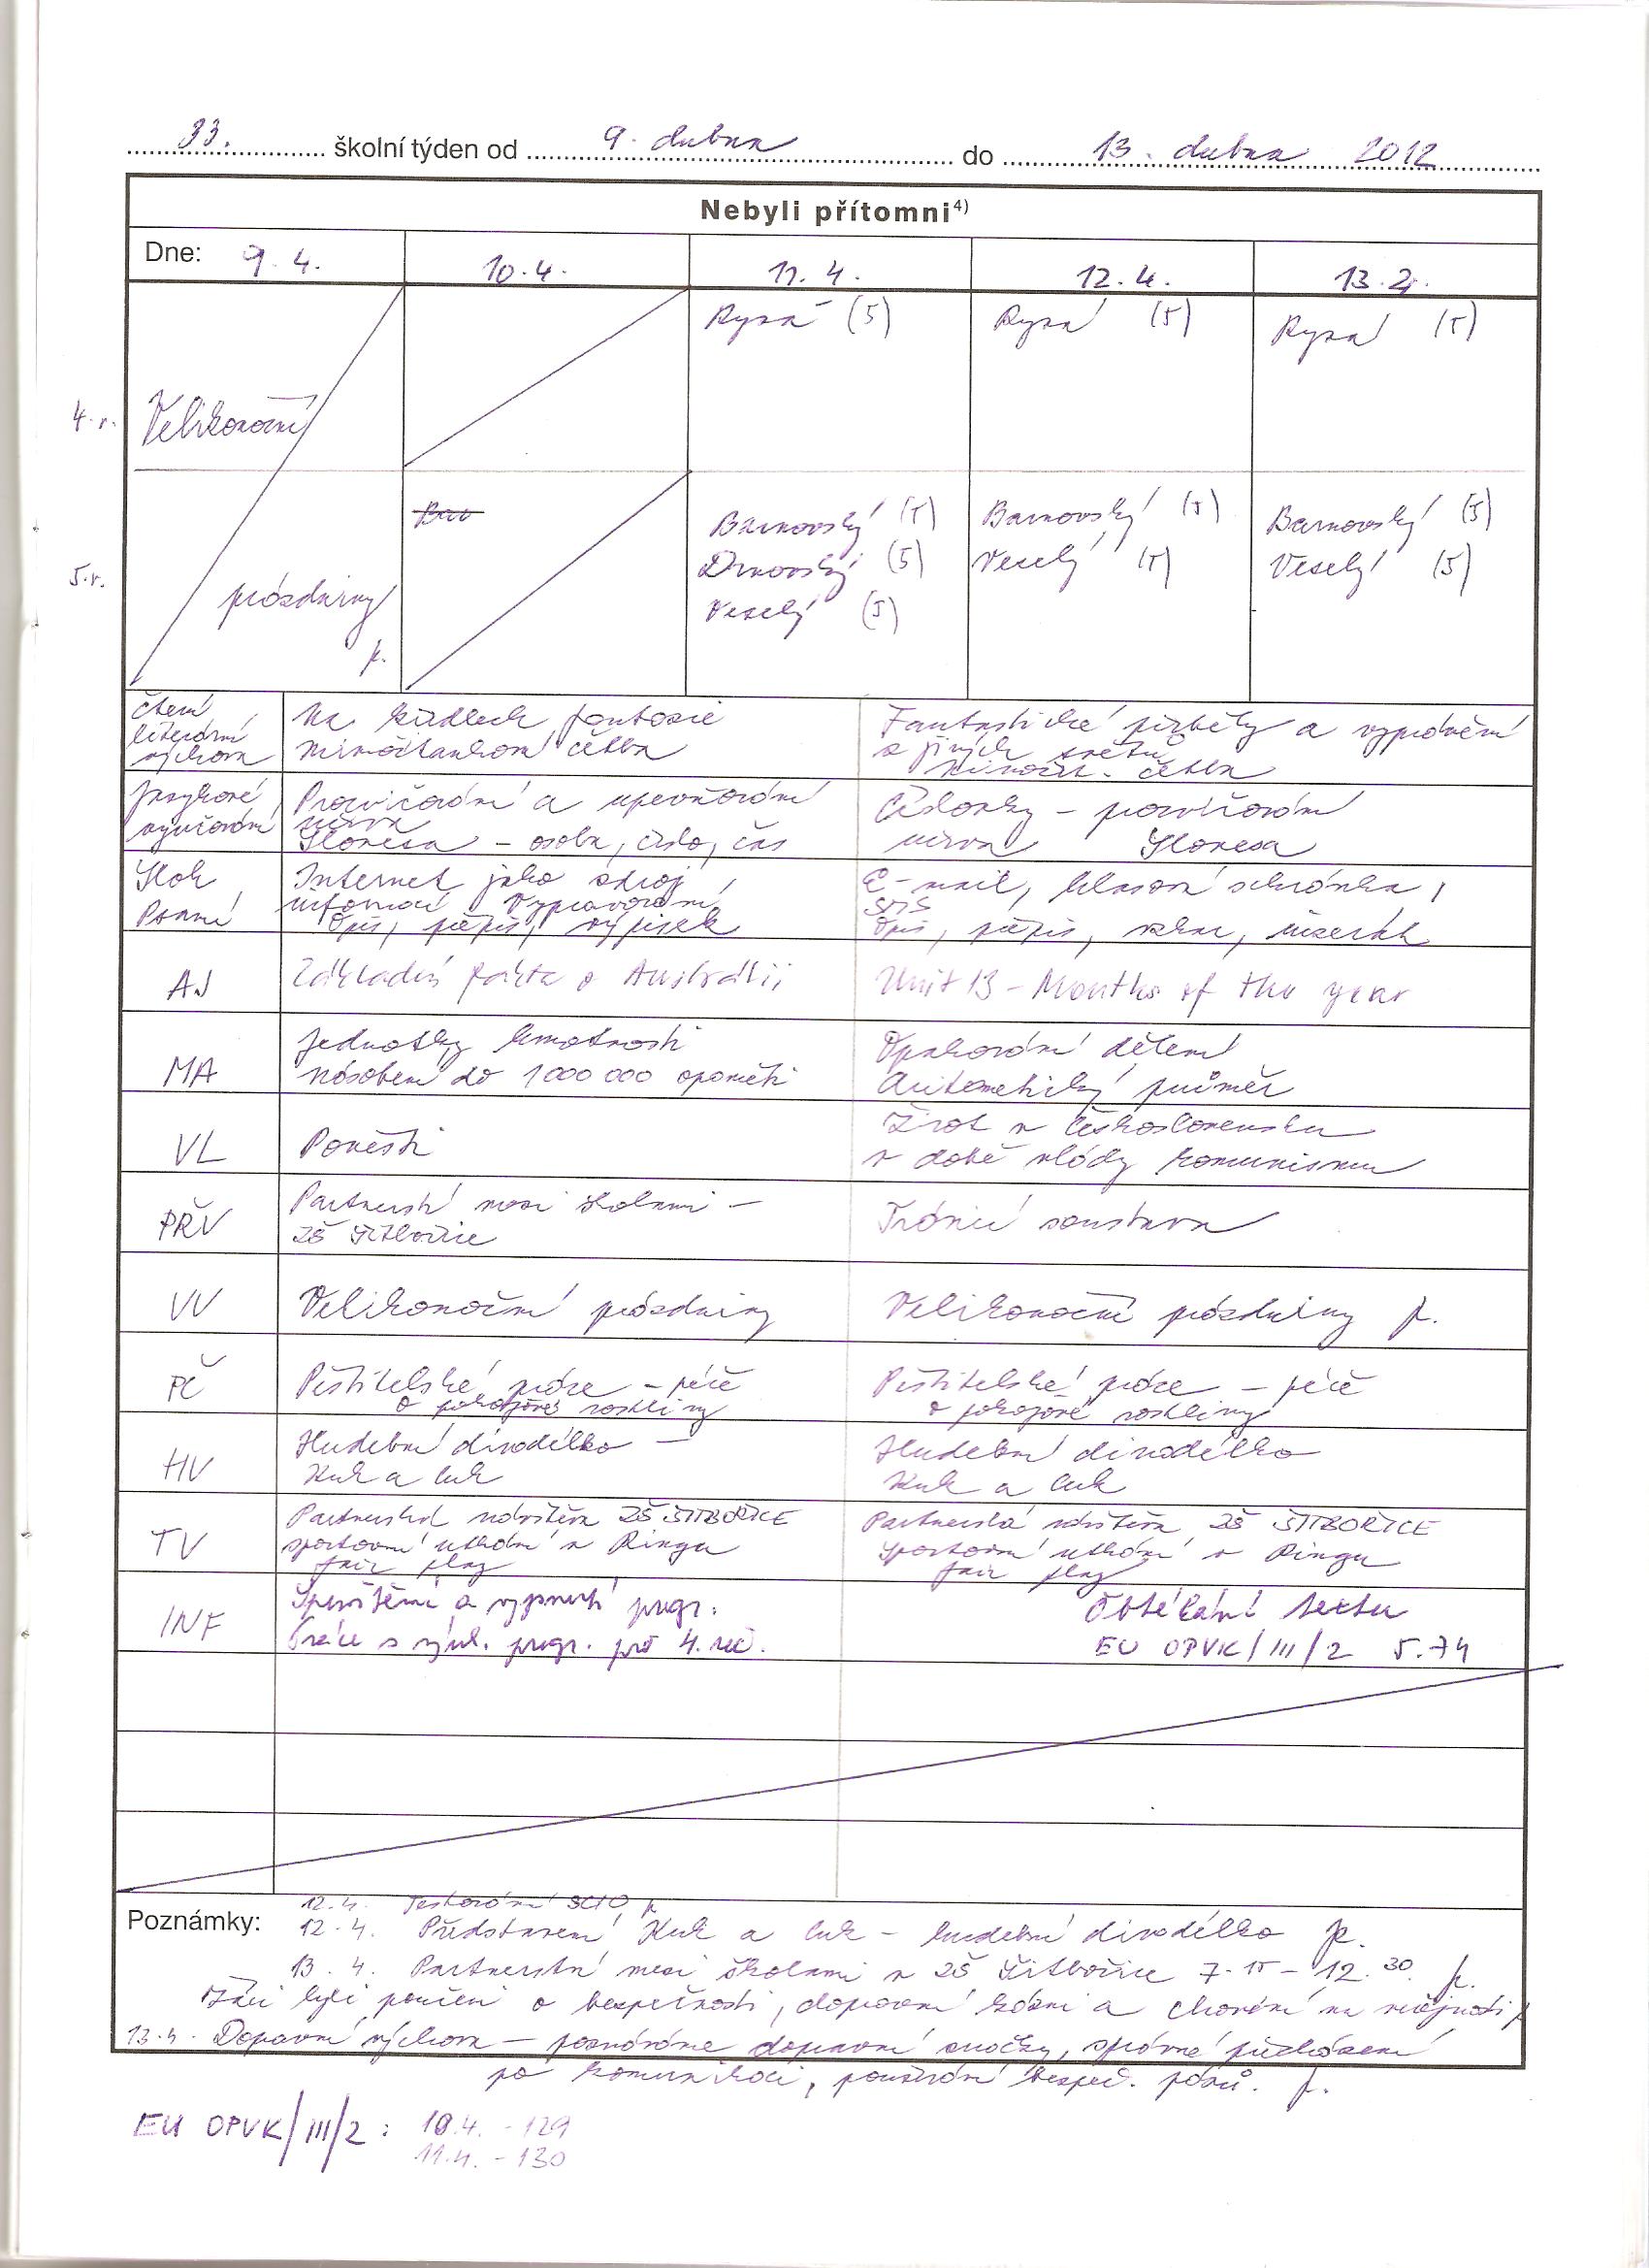 33. školní týden od 9. dubna do 13. dubna 2012
Nebyli přítomni4)
Dne: 9. 4. 10. 4. 11. 4. 12. 4. 13. 4.
Rysá (5) Rysá (5) Rysá (5)
4. r. Velikonoční
Barnovský (5) Barnovský (5) Barnovský (5)
Drnovský (5) Veselý (5) Veselý (5)
5. r. prázdniny Veselý (5)
p.
Čtení Na křídlech fantazie Fantastické příběhy a vyprávění
literární mimočítanková četba z jiných světů
výchova mimočít. četba
Jazykové Procvičování a upevňování Číslovky – procvičování
vyučování učiva učiva Slovesa
Slovesa – osoba, číslo, čas
Sloh Internet jako zdroj E-mail, hlasová schránka,
informací Vypravování, SMS
Psaní Opis, přepis, výpisek Opis, přepis, vzkaz, inzerát
AJ Základní fakta o Austrálii Unit 13 – Months of the year
MA Jednotky hmotnosti Opakování dělení
Násobení do 1 000 000 zpaměti Aritmetický průměr
VL Pověsti Život v Československu
v době vlády komunismu
PŘV Partnerství mezi školami – Trávicí soustava
ZŠ Šitbořice
VV Velikonoční prázdniny Velikonoční prázdniny p.
PČ Pěstitelské práce – péče Pěstitelské práce – péče
o pokojové rostliny o pokojové rostliny
HV Hudební divadélko – Hudební divadélko
Kuk a cuk Kuk a cuk
TV Partnerská návštěva ZŠ ŠITBOŘICE Partnerská návštěva ZŠ ŠITBOŘICE
sportovní utkání v Ringu sportovní utkání v Ringu
fair play fair play
INF Spuštění a vypnutí progr. Obtékání textu
Práce s výuk. progr. pro 4. roč. EU OPVK/III/2 5.74
12. 4. Testování SCIO p.
Poznámky: 12. 4. Představení Kuk a cuk – hudební divadélko p.
13. 4. Partnerství mezi školami v ZŠ Šitbořice 7.15 – 12.30 p.
Žáci byli poučeni o bezpečnosti, dopravní kázni a chování na veřejnosti p.
13. 4. Dopravní výchova – poznáváme dopravní značky, správné přecházení
po komunikaci, používání bezpeč. pásů. p.
EU OPVK/III/2: 10.4. - 129
11.4. - 130